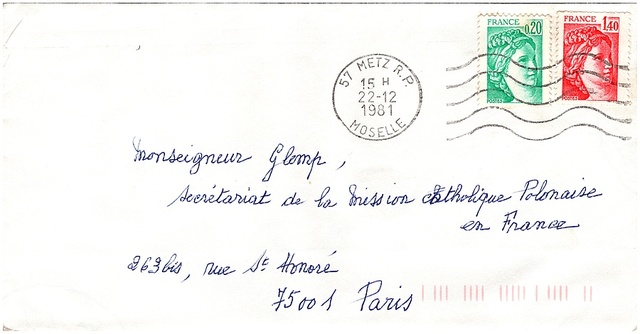 FRANCE 0,20
FRANCE 1,40
POSTES
POSTES
57 METZ R.P.
15 H
22-12
1981
MOSELLE
Monseigneur Glemp,
secrétariat de la Mission catholique Polonaise
en France
263bis, rue St Honoré
75001 Paris